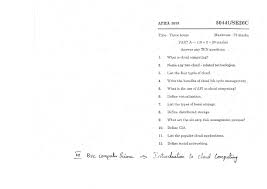 APRIL 2023
50441/SE26C
Time : Three hours
Maximum : 75 marks
PART A — (10 × 2 = 20 marks)
Answer any TEN questions.
1. What is cloud computing?
2. Name any two cloud-related technologies.
3. List the four types of cloud.
4. Write the benefits of cloud life cycle management.
5. What is an API in cloud storage?
6. Define virtualization.
7. List the types of block storage.
8. Define distributed storage.
9. What are the six key risk management process?
10. Define CIA.
11. List the popular cloud audit tools.
12. Define social networking.
III Bsc computer Science → Introduction to cloud Computing